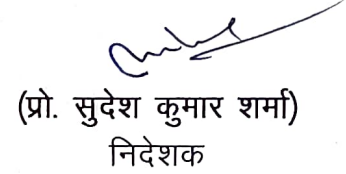 (प्रो. सुदेश कुमार शर्मा)
निदेशक